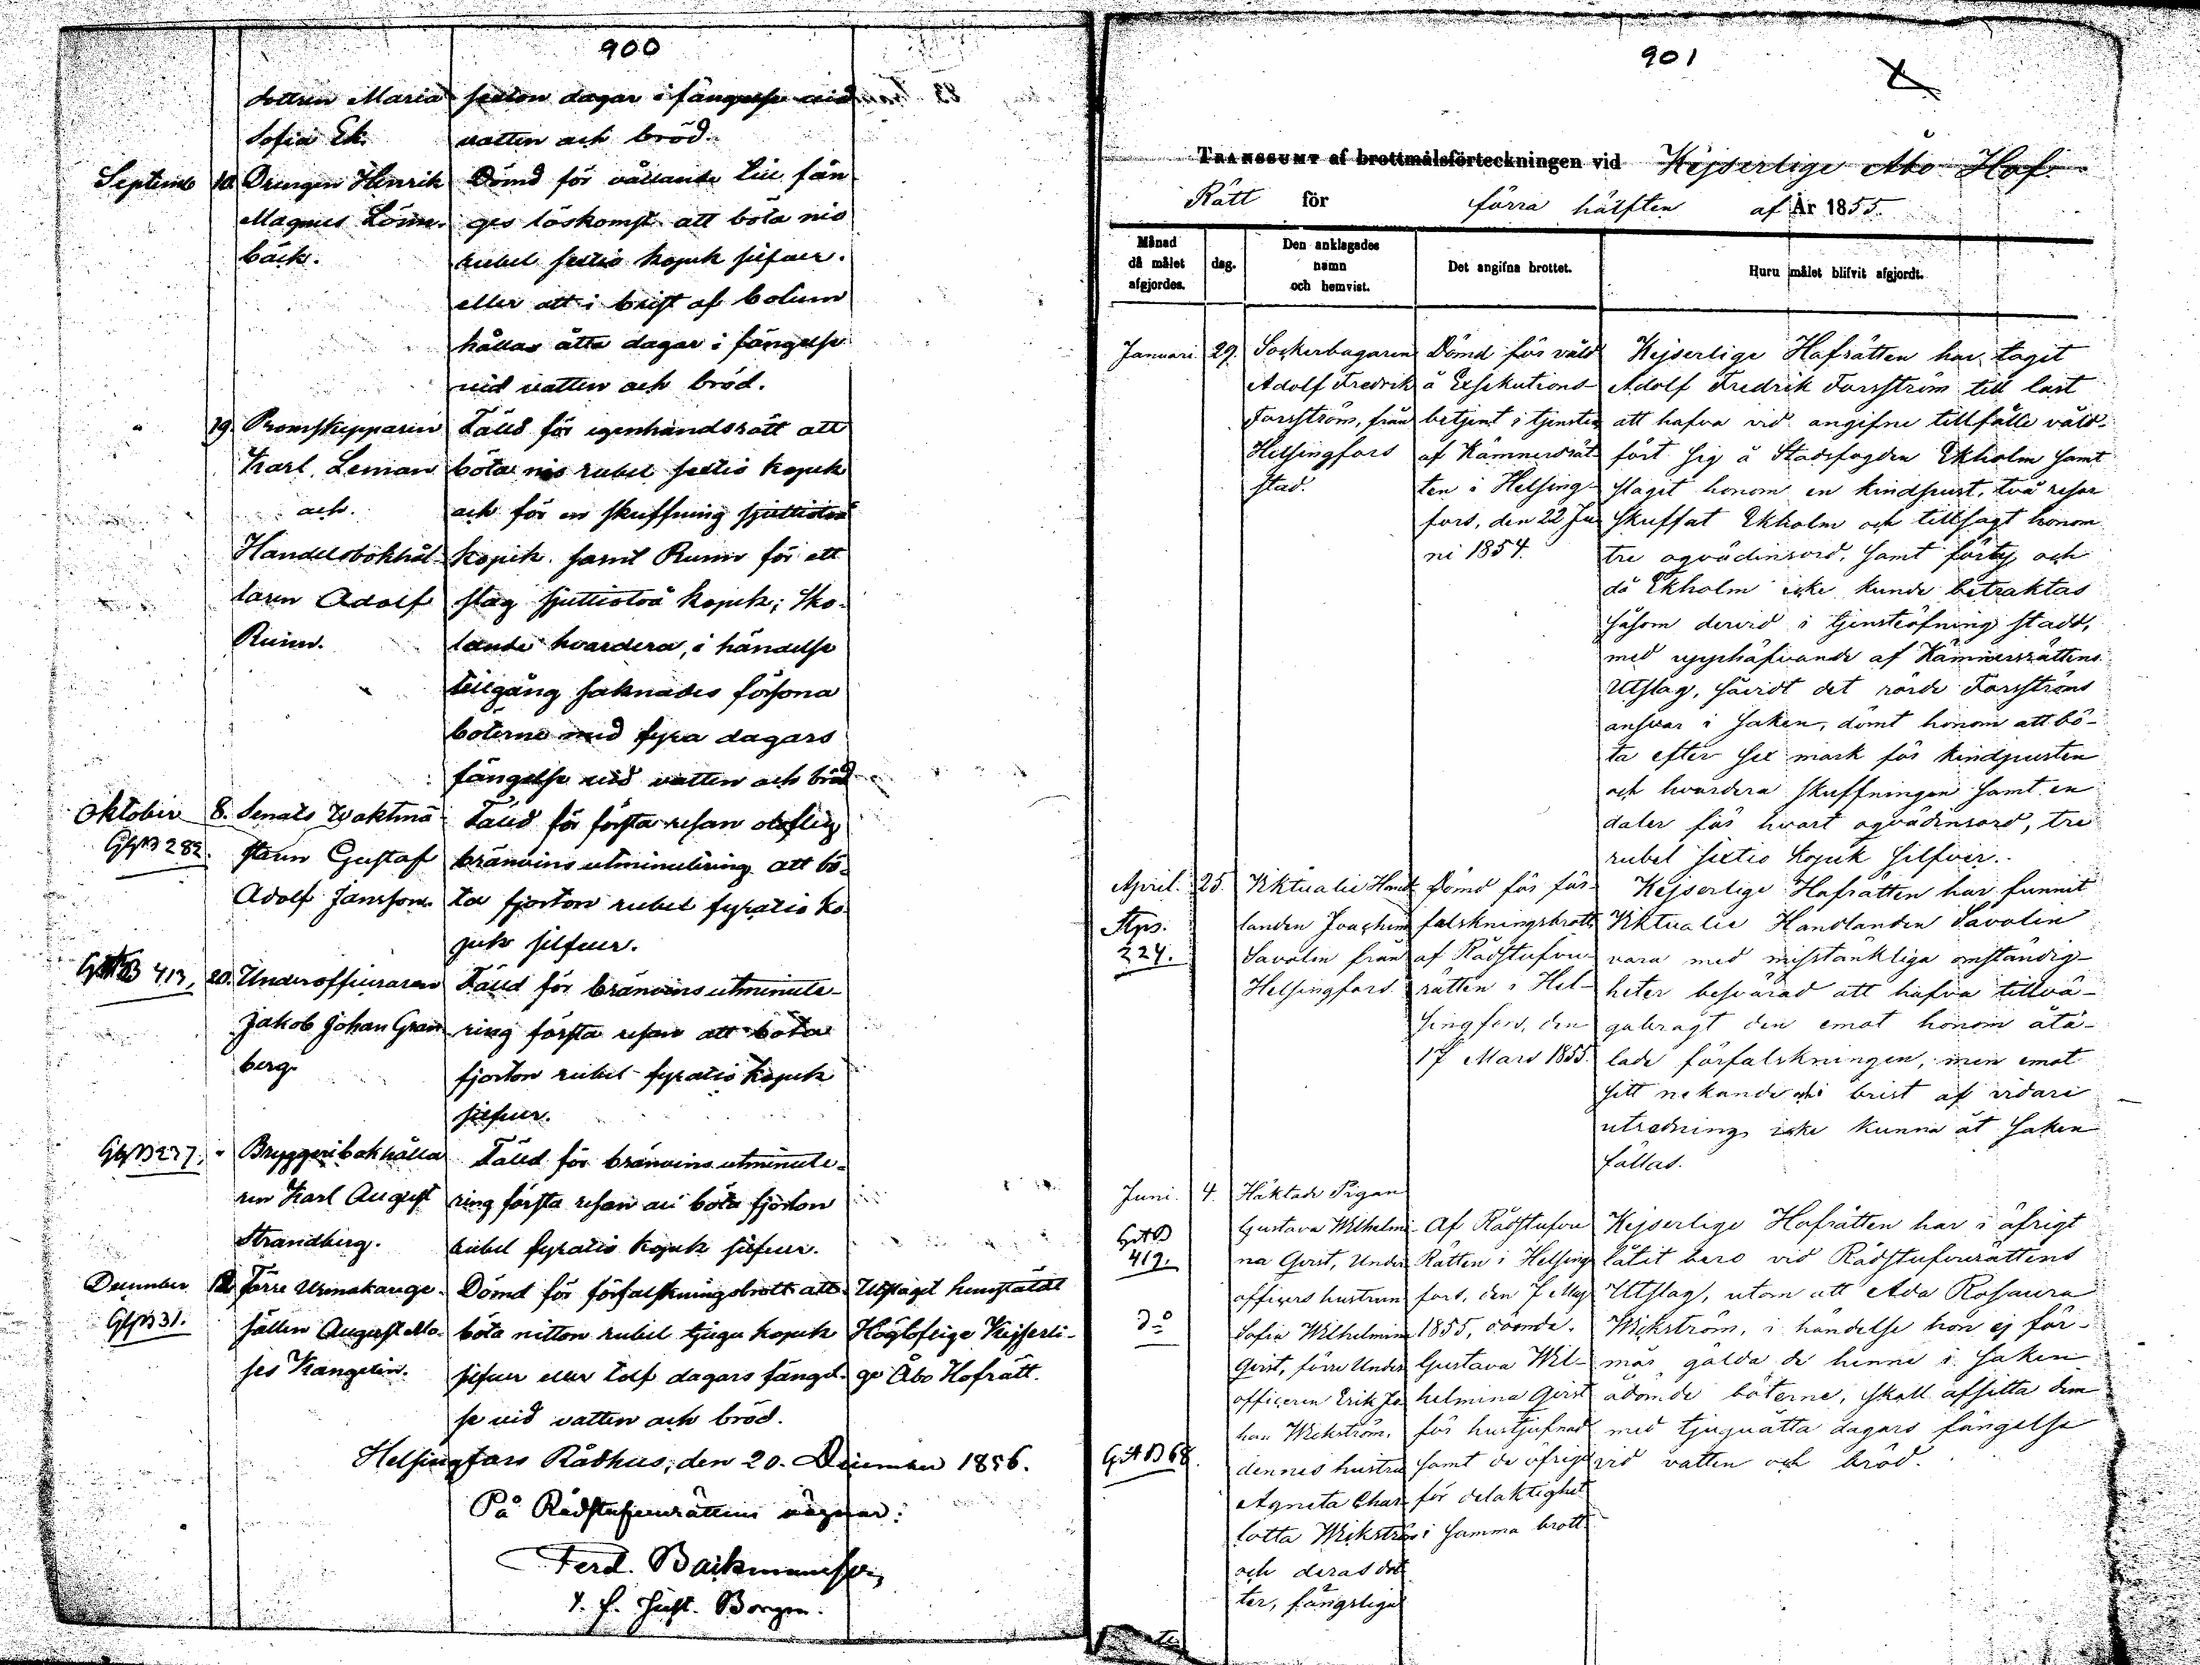 900
dottren Maria
Sofia Ek.
sexton dagar i fängelse vid
vatten och bröd.
Septemb
10.
Drengen Henrik
Magnus Lönn-
bäck.
Dömd för vållande till fån
ges löskomst att böta nio
rubel sextio kopek silfver.
eller att i brist af botum
hållas åtta dagar i fängelse
vid vatten och bröd.
"
19.
Promskepparen
Karl Leman
och
Handelsbokhål-
laren Adolf
Fälld för egenhandsrätt att
böta nio rubel sextio kopek
och för en skuffning sjuttiotvå
kopek samt Runn för ett
slag sjuttiotvå kopek; sko-
lande hvardera, i händelse
tillgång saknades försona
böterne med fyra dagars
fängelse vid vatten och bröd
Oktober
8.
Senats Waktmä
staren Gustaf
Adolf Jansson
Fälld för första resan oloflig
bränvins utminutering att bö-
ta fjorton rubel fyratio ko-
pek silfver.
413,
20.
Underofficeraren
Jakob Johan Gran
berg.
Fälld för bränvins utminute-
ring första resan att böta
fjorton rubel fyratio kopek
silfver.
"
Bryggeribokhålla
ren Karl August
Strandberg.
Fälld för bränvins utminute-
ring första resan att böta fjorton
rubel fyratio kopek silfver.
December
förre Urmakarge-
sällen August Mo-
ses Kangelin.
Dömd för förfalskningsbrott att
böta nitton rubel tjugu kopek
silfver eller tolf dagars fängel-
se vid vatten och bröd.
Utslaget hemstäldt
Högloflige Kejserli-
ge Åbo Hofrätt.
Helsingfors Rådhus, den 20. December 1856.
På Rådstufvurättens vägnar:
Ferd. Backmansson
Borgm.
901
Transsumt af brottmålsförteckningen vid Kejserlige Åbo Hof-
Rätt för förra hälften af År 1855.
Månad
då målet
afgjordes.
dag.
Den anklagades
namn
och hemvist.
Det angifna brottet.
Huru målet blifvit afgjordt.
Januari
29.
Sockerbagaren
Adolf Fredrik
Forsström, från
Helsingfors
stad.
Dömd för våld
å Exsekutions-
betjent i tjensten
af Kämnersrät-
ten i Helsing-
fors, den 22 Ju
ni 1854.
Kejserlige Hofrätten har taget
Adolf Fredrik Forsström till last
att hafva vid angifne tillfälle våld-
fört sig å Stadsfogden Ekholm samt
slaget honom en kindpust, två resor
skuffat Ekholm och tillsagt honom
tre oqvädinsord, samt förty och
då Ekholm icke kunde betraktas
såsom dervid i tjensteöfning stadd,
med upphäfvande af Kämnersrättens
Utslag, såvidt det rörde Forsströms
ansvar i saken, dömt honom att bö-
ta efter sex mark för kindpusten
och hvardera skuffningen samt en
daler för hvart oqvädinsord, tre
rubel sextio kopek silfver.
April.
25.
224.
Viktualie Hand-
landen Joachim
Savolin från
Helsingfors.
Dömd för för-
falskningsbrott
af Rådstufvu-
rätten i Hel-
singfors, den
17 Mars 1855.
Kejserlige Hofrätten har funnit
Viktualie Handlanden Savolin
vara med misstänkliga omständig-
heter besvärad att hafva tillvä-
gabragt den emot honom åta-
lade förfalskningen, men emot
sitt nekande och i brist af vidare
utredning icke kunna åt saken
fällas.
Juni.
4.
419.
do
Häktade Pigan
Gustava Wilhelmi-
na Qvist, Under
officers hustrun
Sofia Wilhelmina
Qvist, förre Under
officeren Erik Jo
han Wickström,
dennes hustru
Agneta Char-
lotta Wickström
och deras dot
ter, fängsliga
Af Rådstufvu
Rätten i Helsing
fors, den 7 Maj
1855, dömde.
Gustava Wil-
helmina Qvist
för hustjufnad
samt de öfrige
för delaktighet
i samma brott.
Kejserlige Hofrätten har i öfrigt
låtit bero vid Rådstufvurättens
Utslag, utom att Ada Rosaura
Wickström, i händelse hon ej för-
mår gälda de henne i saken
ådömde böterne, skall afsitta dem
med tjuguåtta dagars fängelse
vid vatten och bröd.